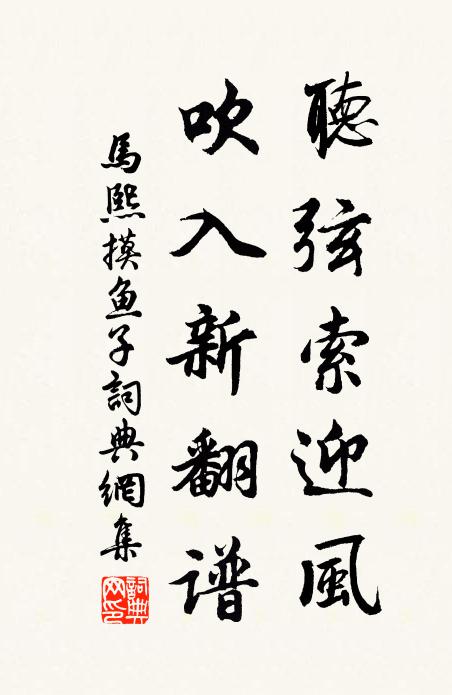 聽弦索迎風
吹入新翻谱
馬熙摸鱼子詞典網集
詞典网印